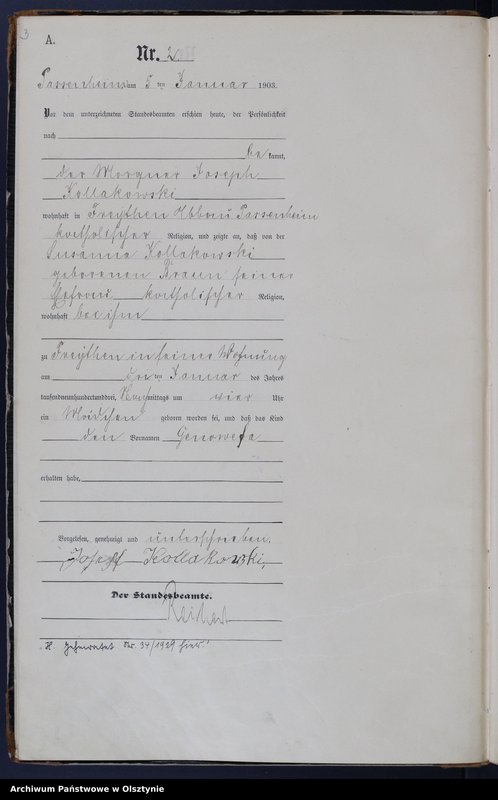 3
A.
Nr. 2.
Passenheim am 5 ten Januar 1903.
Vor dem unterzeichneten Standesbeamten erschien heute, der Persönlichkeit
nach
be kannt,
der Joseph
Kollakowski
wohnhaft in Passenheim
katholischer Religion, und zeigte an, daß von der
Susanna Kollakowski
geborenen Braun seiner
Ehefrau katholischer Religion,
wohnhaft bei ihm
zu in seiner Wohnung
am ten Januar des Jahres
tausendneunhundertunddrei, Nachmittags um vier Uhr
ein Mädchen geboren worden sei, und daß das Kind
den Vornamen Genowefa
erhalten habe.
Vorgelesen, genehmigt und unterschrieben.
Josef Kollakowski,
Der Standesbeamte.
Geheiratet Nr. 34/1929 hier.
Archiwum Państwowe w Olsztynie